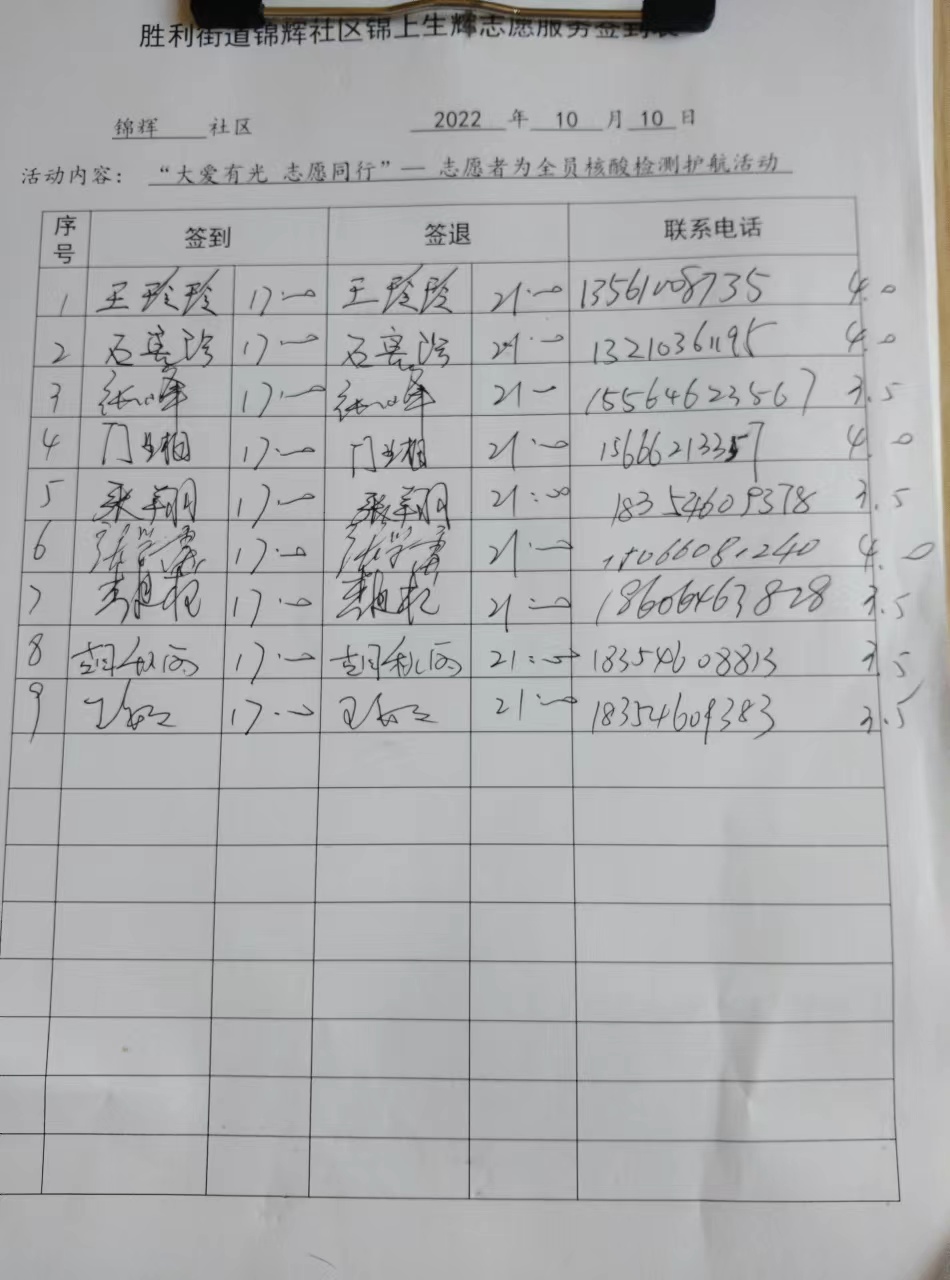 胜利街道锦辉社区锦上生辉志愿服务签到表
锦辉 社区 2022 年 10 月 10 日
活动内容： “大爱有光 志愿同行”— 志愿者为全员核酸检测护航活动
序号 签到 签退 联系电话
1 王玲玲 17:00 王玲玲 21:00 13561008735 4.0
2 17:00 21:00 13210361195 4.0
3 17:00 21:00 15564623567 3.5
4 17:00 21:00 15666213357 4.0
5 张翔 17:00 张翔 21:00 18354609378 3.5
6 17:00 21:00 4.0
7 17:00 21:00 18606463828 3.5
8 17:00 21:00 18354608813 3.5
9 17:00 21:00 18354609383 3.5